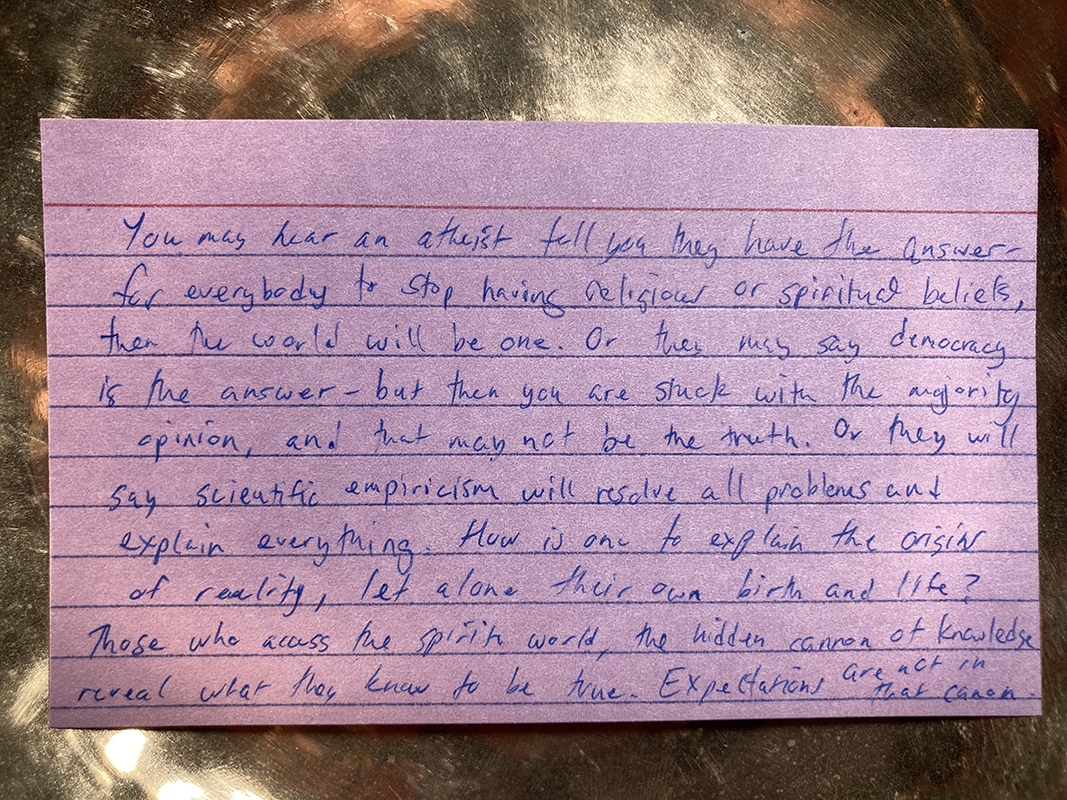 You may hear an atheist tell you they have the answer-
for everybody to stop having religious or spiritual beliefs,
then the world will be one. Or they may say democracy
is the answer - but then you are stuck with the majority
opinion, and that may not be the truth. Or they will
say scientific empiricism will resolve all problems and
explain everything. How is one to explain the origins
of reality, let alone their own birth and life?
Those who access the spirit world, the hidden cannon of knowledge
reveal what they know to be true. Expectations are not in
that canon.